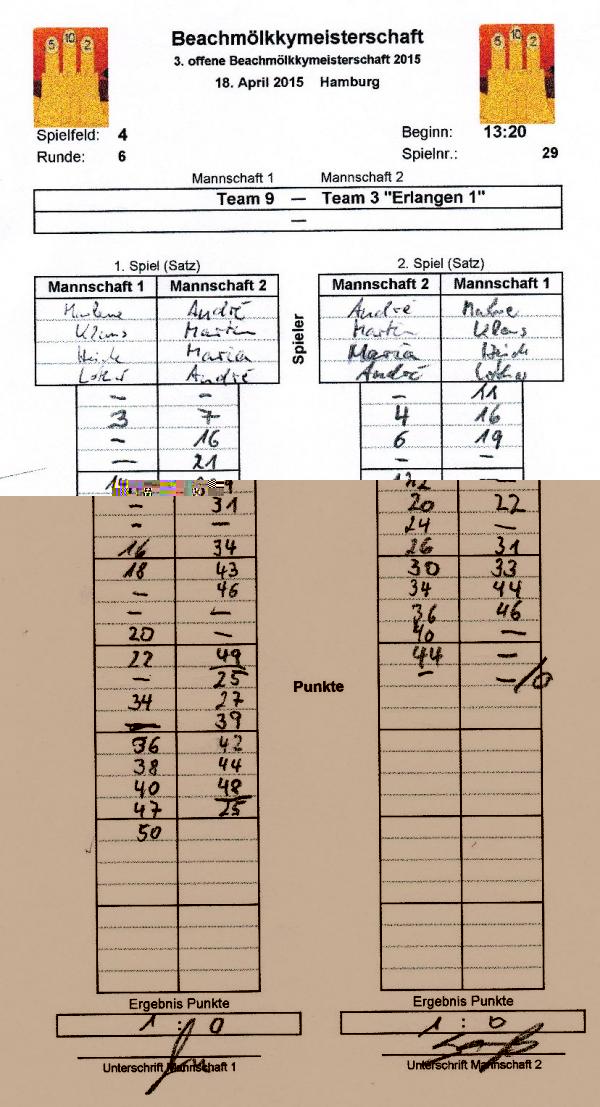 5 10 2
5 10 2
Beachmölkkymeisterschaft
3. offene Beachmölkkymeisterschaft 2015
18. April 2015 Hamburg
Spielfeld: 4
Beginn: 13:20
Runde: 6
Spielnr.: 29
Mannschaft 1 Mannschaft 2
Team 9 — Team 3 "Erlangen 1"
—
1. Spiel (Satz)
2. Spiel (Satz)
Mannschaft 1 Mannschaft 2
Mannschaft 2 Mannschaft 1
Spieler
André André
Klaus Martin Martin Klaus
Maria Maria
Lothar André André Lothar
- - - 11
3 7 4 16
- 16 6 19
- 21 - -
- 31 20 22
- - 24 -
16 34 26 31
18 43 30 33
- 46 34 44
- - 36 46
20 - 40 -
22 49 44 -
- 25 - -/0
Punkte
34 27
- 39
36 42
38 44
40 48
47 25
50
Ergebnis Punkte
Ergebnis Punkte
1 : 0
1 : 0
Unterschrift Mannschaft 1
Unterschrift Mannschaft 2